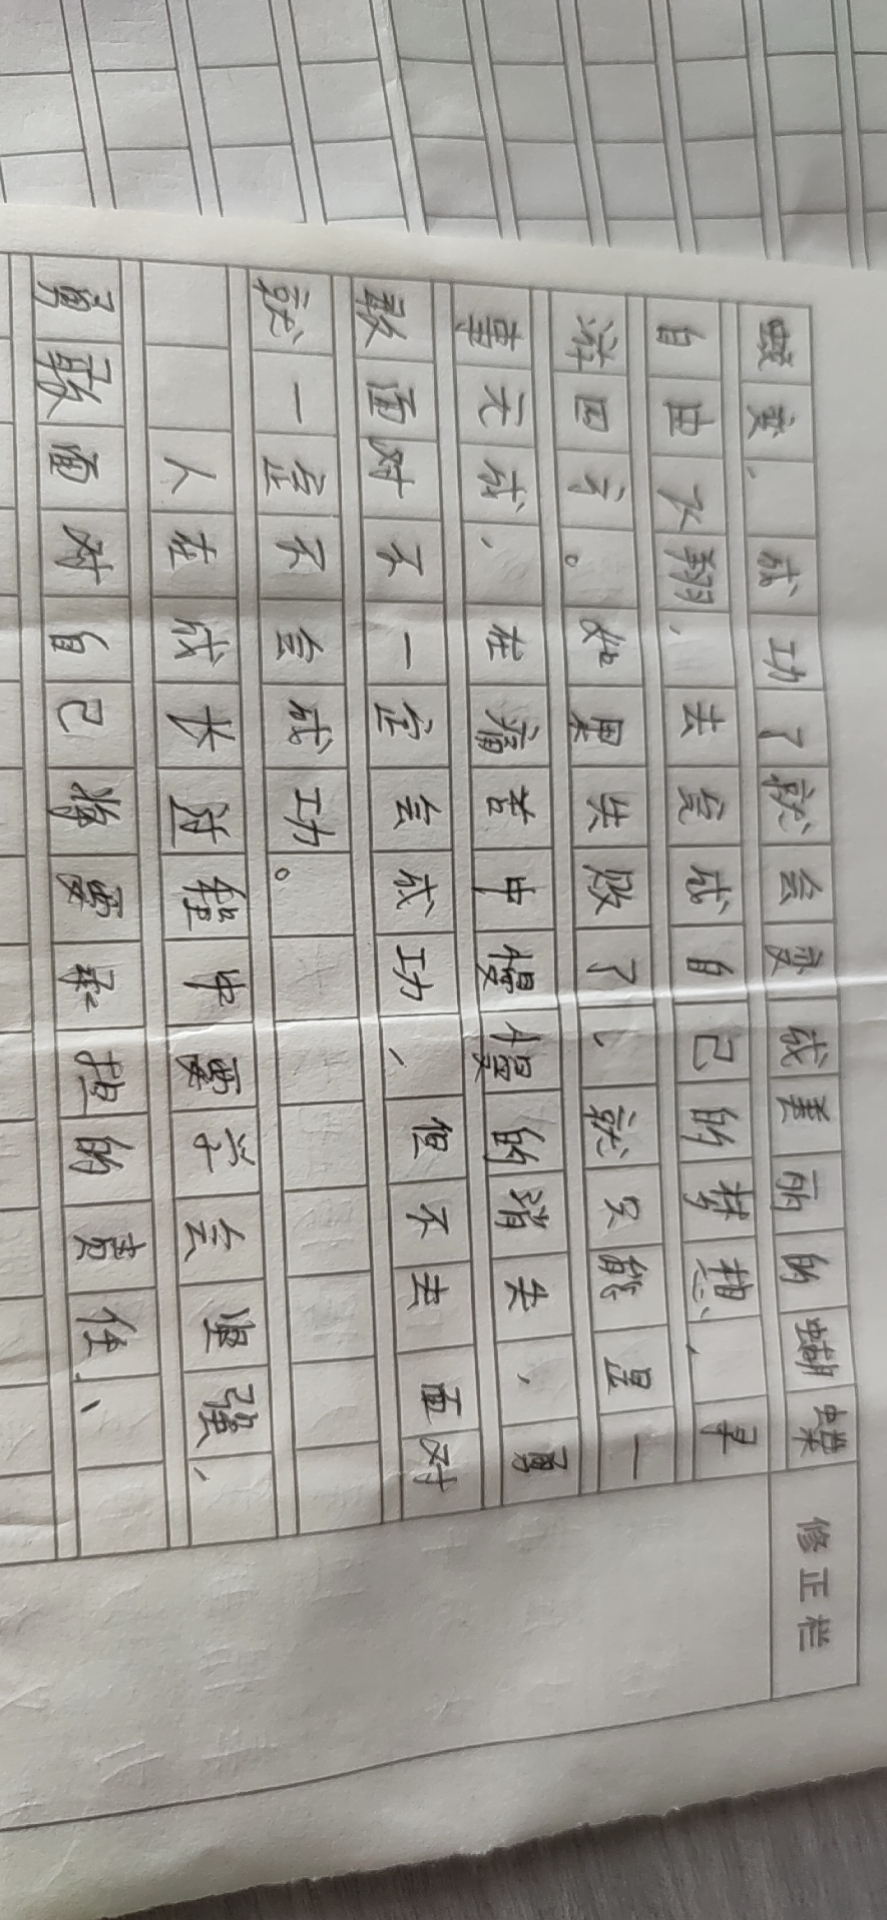 蜕变、成功了就会变成美丽的蝴蝶
自由飞翔、去完成自己的梦想、
游四方。如果失败了、就只能是一
事无成、在痛苦中慢慢的消失，勇
敢面对不一定会成功、但不去面对
就一定不会成功。
人在成长过程中要学会坚强、
勇敢面对自己将要承担的责任、
修正栏